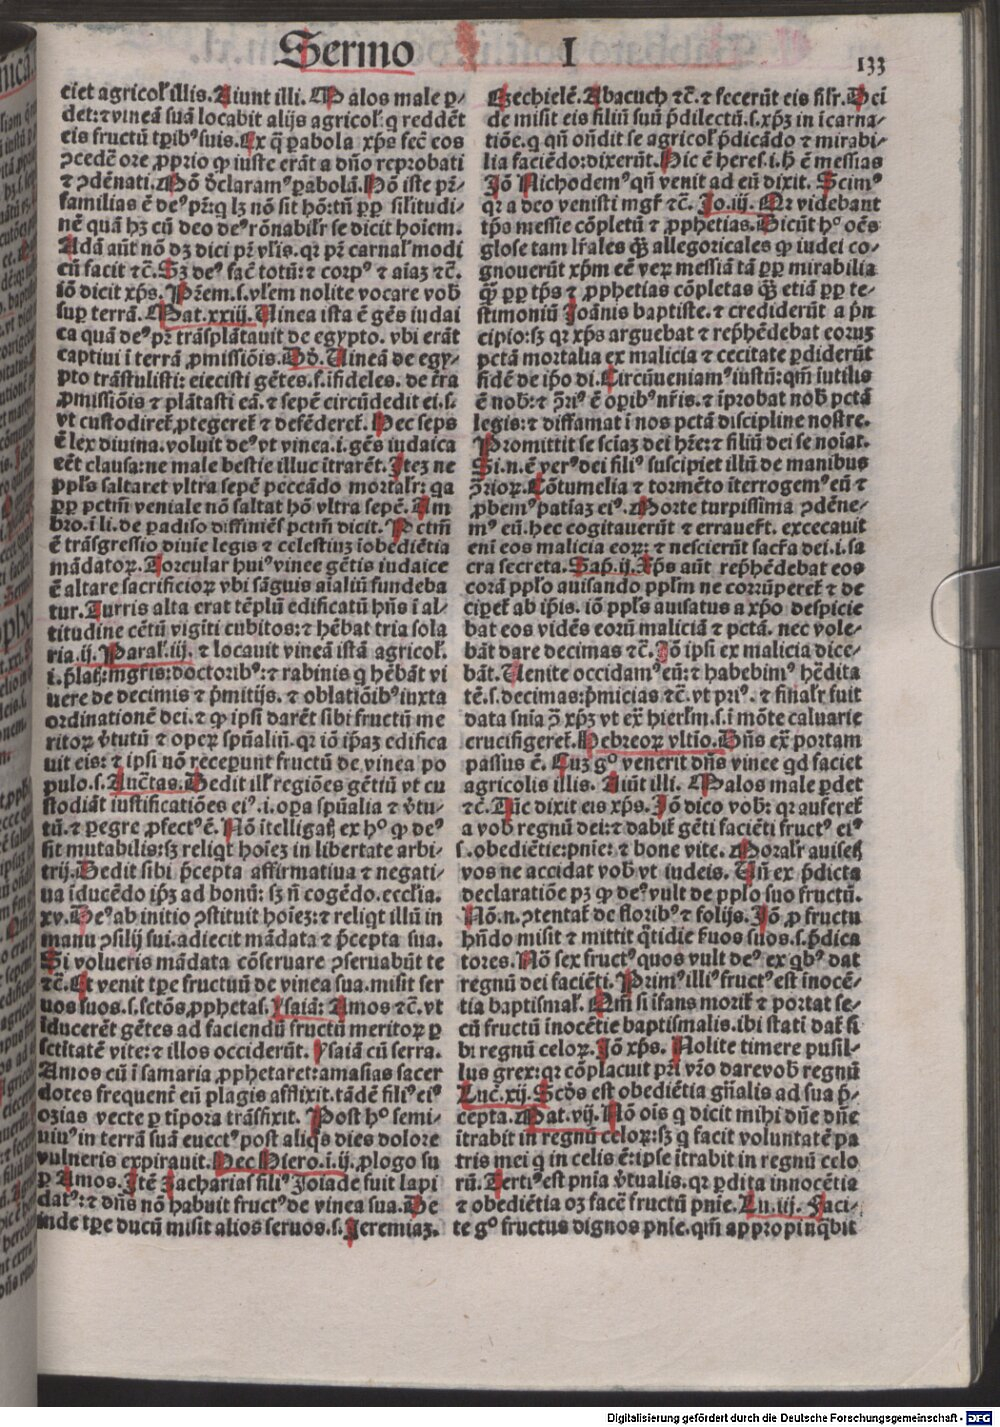 Sermo I
133
ciet agricol̄ illis. Aiunt illi. Malos male p̱-
det: ⁊ vineā suā locabit alijs agricol̄ q̇ reddēt
eis fructū tp̱ibꝰ suis. Ex q̄ p̱abola xp̄s fec̄ eos
ꝓcedē ore ꝓprio q̇ iuste erāt a dn̄o reprobati
⁊ ꝯdēnati. Nō d̄claramꝰ p̱abolā. Hō iste pr̄-
familias ē deꝰ pr̄: q̇ lꝫ nō sit hō: tn̄ p̱p̱ sil̄itudi-
nē quā hꝫ cū deo deꝰ rōnabilr̄ se dicit hoīem.
Adā aūt nō dꝫ dici pr̄ vl̄is. qꝛ pr̄ carnal̄ modi
cū facit ⁊c̄. Sꝫ deꝰ fac̄ totū: ⁊ corpꝰ ⁊ aīaꝫ ⁊c̄.
iō dicit xp̄s. Pr̄em .s. vl̄em nolite vocare vob̄
sup̱ terrā. Mat. xxiij. Uinea ista ē gēs iudai
ca quā deꝰ pr̄ trāsplātauit de egypto. vbi erāt
captiui ī terrā ꝓmissiōis. Dd̄. Uineā de egy-
pto trāstulisti: eiecisti gētes .s. īfideles. de tr̄a
ꝓmissiōis ⁊ plātasti eā. ⁊ sepē circūdedit ei .s.
vt custodiret̄, ꝓtegeret̄ ⁊ defēderet̄. Hec seps
ē lex diuina. voluit deꝰ vt vinea .i. gēs iudaica
eēt clausa: ne male bestie illuc ītrarēt. Iteꝫ ne
ppl̄s saltaret vltra sepē peccādo mortal̄r: qa
p̱p̱ pctm̄ veniale nō saltat hō vltra sepē. Am
bro. ī li. de padiso diffiniēs pctm̄ dicit. Pctm̄
ē trāsgressio diuīe legis ⁊ celestiuꝫ īobediētia
mādatoꝝ. Torcular huiꝰ vinee gētis iudaice
ē altare sacrificioꝝ vbi sāguis aīaliū fundeba
tur. Turris alta erat tēplū edificatū hn̄s ī al-
titudine cētū vigīti cubitos: ⁊ hēbat tria sola
ria. ij. Paral̄. iij. ⁊ locauit vineā istā agricol̄.
.i. p̄latꝭ: mgris: doctoribꝰ: ⁊ rabinis q̇ hēbāt vi
uere de decimis ⁊ p̄mitijs. ⁊ oblatiōibꝰ iuxta
ordinationē dei. ⁊ ꝙ ipsi darēt sibi fructū me
ritoꝝ v̄tutū ⁊ opeꝝ spūaliū. qꝛ iō ip̄aꝫ edifica
uit eis: ⁊ ipsi nō receperunt fructū de vinea po
pulo .s. Auctas. Dedit ill̄ regiōes gētiū vt cu
stodiāt iustificatiōes eiꝰ .i. opa spūalia ⁊ v̄tu-
tū. ⁊ pegre ꝓfectꝰ ē. Nō ītelligatꝭ ex hº ꝙ deꝰ
sit mutabilis: sꝫ reliqt hoīeꝫ in libertate arbi-
trij. Dedit sibi p̄cepta affirmatiua ⁊ negati-
ua īducēdo ip̄ꝫ ad bonū: sꝫ n̄ cogēdo. eccl̄ia.
xv. Deꝰ ab initio ꝯstituit hoīeꝫ: ⁊ reliqt illū in
manu ꝯsilij sui. adiecit mādata ⁊ p̄cepta sua.
Si volueris mādata cōseruare ꝯseruabūt te
⁊c̄. Et venit tp̱e fructuū de vinea sua. misit ser
uos suos .s. sctōs, ꝓphetas. Ysaiā: Amos ⁊c̄. vt
īducerēt gētes ad faciendū fructū meritoꝝ p̱
sctitatē vite: ⁊ illos occiderūt. Ysaiā cū serra.
Amos cū ī samaria ꝓphetaret: amasias sacer
dotes frequent̄ eū plagis afflixit. tādē filiꝰ eiꝰ
ozias vecte p̱ tīpora trāsfixit. Post hº semi-
uiuꝰ in terrā suā euectꝰ post aliqs dies dolore
vulneris expirauit. Hec Hiero. i. ij. ꝓlogo su
p̱ Amos. Itē Zacharias filiꝰ Joiade fuit lapi
datꝰ: ⁊ dn̄s nō habuit fructꝰ de vinea sua. De
inde tp̱e ducū misit alios seruos .s. Jeremiaꝫ.
Ezechielē. Abacuch ⁊c̄. ⁊ fecerūt eis sil̄r. Dei
de misit eis filiū suū p̄dilectū .s. xp̄ꝫ in īcarna-
tiōe. q̇ qn̄ on̄dit se agricol̄ p̄dicādo ⁊ mirabi-
lia faciēdo: dixerūt. Hic ē heres .i. h̄ ē messias
Jō Nichodemꝰ qn̄ venit ad eū dixit. Scimꝰ
qꝛ a deo venisti mgr̄ ⁊c̄. Jo. iij. Qꝛ videbant
tp̄s messie cōpletū ⁊ ꝓphetias. Dicūt hº oēs
glose tam lr̄ales q̄ꝫ allegoricales ꝙ iudei co-
gnouerūt xp̄m eē veꝝ messiā tā p̱p̱ mirabilia
q̄ꝫ p̱p̱ tp̄s ⁊ ꝓphetias cōpletas q̄ꝫ etiā p̱p̱ te-
stimoniū Joānis baptiste. ⁊ crediderūt a p̄n
cipio: sꝫ qꝛ xp̄s arguebat ⁊ rep̄hēdebat eoruꝫ
pctā mortalia ex malicia ⁊ cecitate p̱diderūt
fidē de ip̄o di. Circūueniamꝰ iustū: qm̄ īutilis
ē nob̄: ⁊ ꝯr̄iꝰ ē opibꝰ nr̄is. ⁊ īprobat nob̄ pctā
legis: ⁊ diffamat ī nos pctā discipline nostre.
Promittit se sciaꝫ dei hr̄e: ⁊ filiū dei se noīat.
Si .n. ē verꝰ dei filiꝰ suscipiet illū de manibus
ꝯr̄ioꝝ. Cōtumelia ⁊ tormēto īterrogemꝰ eū ⁊
ꝓbemꝰ patiaꝫ eiꝰ. Morte turpissima ꝯdēne-
mꝰ eū. hec cogitauerūt ⁊ errauer̄t. excecauit
enī eos malicia eoꝝ: ⁊ nescierūt sacr̄a dei .i. sa
cra secreta. Sap. ij. Xp̄s aūt rep̄hēdebat eos
corā ppl̄o auisando ppl̄m ne corrūperet̄ ⁊ de
ciperet̄ ab ip̄is. iō ppl̄s auisatus a xp̄o despicie
bat eos vidēs eorū maliciā ⁊ pctā. nec vole-
bāt dare decimas ⁊c̄. Jō ip̄i ex malicia dice-
bāt. Uenite occidamꝰ eū: ⁊ habebimꝰ hēdita
tē .s. decimas: p̄micias ⁊c̄. vt priꝰ. ⁊ final̄r fuit
data snīa ꝯ̄ xp̄ꝫ vt ex̄ hierl̄m .s. ī mōte caluarie
crucifigeret̄. Hebreoꝝ vl̄tio. Dn̄s ex̄ portam
passus ē. Cuꝫ gº venerit dn̄s vinee qd faciet
agricolis illis. Aiūt illi. Malos male p̱det
⁊c̄. Tūc dixit eis xp̄s. Jō dico vob̄: qꝛ auferet̄
a vob regnū dei: ⁊ dabit̄ gēti faciēti fructꝰ eiꝰ
.s. obediētie: pn̄ie: ⁊ bone vite. Moral̄r auisetꝭ
vos ne accidat vob̄ vt iudeis. Un̄ ex p̄dicta
declaratiōe pꝫ ꝙ deꝰ vult de ppl̄o suo fructū.
Nō .n. ꝯtentat̄ de floribꝰ ⁊ folijs. Jō ꝓ fructu
hn̄do misit ⁊ mittit q̄tidie s̄uos suos .s. p̄dica
tores. Nō sex fructꝰ quos vult deꝰ ex q̇bꝰ dat
regnū dei faciēti. Primꝰ illiꝰ fructꝰ est inocē-
tia baptismal̄. Qm̄ si īfans morit̄ ⁊ portat se-
cū fructū īnocētie baptismalis. ibi stati dat̄ si
bi regnū celoꝝ. Jō xp̄s. Nolite timere pusil-
lus grex: qꝛ cōplacuit pr̄i vr̄o dare vob regnū
Luc̄. xij. Scd̄s est obediētia gn̄alis ad sua p̄-
cepta. Mat. vij. Nō oīs q̇ dicit mihi dn̄e dn̄e
ītrabit in regnū celoꝝ: sꝫ q̇ facit voluntatē pa
tris mei q̇ in celis ē: ip̄se ītrabit in regnū celo
rū. Tertiꝰ est pn̄ia v̄tualis. qꝛ p̱dita innocētia
⁊ obediētia oꝫ facē fructū pn̄ie. Lu. iij. Faci-
te gº fructus dignos pn̄ie. qm̄ appropinq̄bit
Digitalisierung gefördert durch die Deutsche Forschungsgemeinschaft - DFG